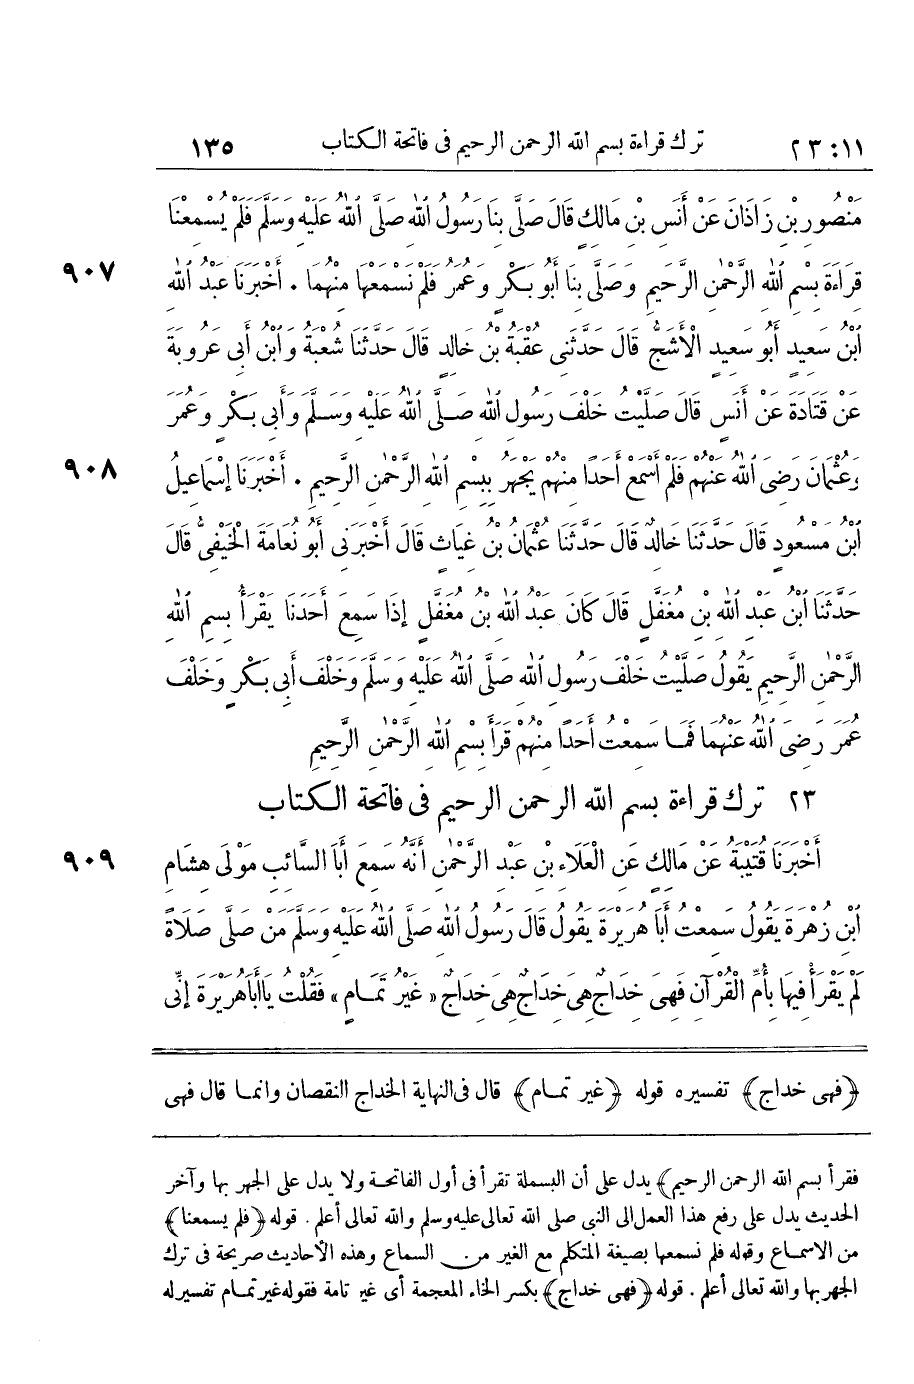 ٢٣:١١ ترك قراءة بسم الله الرحمن الرحيم فى فاتحة الكتاب ١٣٥
مَنْصُورِ بْنِ زَاذَانَ عَنْ أَنَسِ بْنِ مَالِكٍ قَالَ صَلَّى بِنَا رَسُولُ اللهِ صَلَّى اللهُ عَلَيْهِ وَسَلَّمَ فَلَمْ يُسْمِعْنَا
قِرَاءَةَ بِسْمِ اللهِ الرَّحْمٰنِ الرَّحِيمِ وَصَلَّى بِنَا أَبُو بَكْرٍ وَعُمَرُ فَلَمْ نَسْمَعْهَا مِنْهُمَا . أَخْبَرَنَا عَبْدُ اللهِ ٩٠٧
ابْنُ سَعِيدٍ أَبُو سَعِيدٍ الْأَشَجُّ قَالَ حَدَّثَنِى عُقْبَةُ بْنُ خَالِدٍ قَالَ حَدَّثَنَا شُعْبَةُ وَابْنُ أَبِى عَرُوبَةَ
عَنْ قَتَادَةَ عَنْ أَنَسٍ قَالَ صَلَّيْتُ خَلْفَ رَسُولِ اللهِ صَلَّى اللهُ عَلَيْهِ وَسَلَّمَ وَأَبِى بَكْرٍ وَعُمَرَ
وَعُثْمَانَ رَضِىَ اللهُ عَنْهُمْ فَلَمْ أَسْمَعْ أَحَدًا مِنْهُمْ يَجْهَرُ بِبِسْمِ اللهِ الرَّحْمٰنِ الرَّحِيمِ . أَخْبَرَنَا إِسْمَاعِيلُ ٩٠٨
ابْنُ مَسْعُودٍ قَالَ حَدَّثَنَا خَالِدٌ قَالَ حَدَّثَنَا عُثْمَانُ بْنُ غِيَاثٍ قَالَ أَخْبَرَنِى أَبُو نُعَامَةَ الْحَنَفِىُّ قَالَ
حَدَّثَنَا ابْنُ عَبْدِ اللهِ بْنِ مُغَفَّلٍ قَالَ كَانَ عَبْدُ اللهِ بْنُ مُغَفَّلٍ إِذَا سَمِعَ أَحَدَنَا يَقْرَأُ بِسْمِ اللهِ
الرَّحْمٰنِ الرَّحِيمِ يَقُولُ صَلَّيْتُ خَلْفَ رَسُولِ اللهِ صَلَّى اللهُ عَلَيْهِ وَسَلَّمَ وَخَلْفَ أَبِى بَكْرٍ وَخَلْفَ
عُمَرَ رَضِىَ اللهُ عَنْهُمَا فَمَا سَمِعْتُ أَحَدًا مِنْهُمْ قَرَأَ بِسْمِ اللهِ الرَّحْمٰنِ الرَّحِيمِ
٢٣ ترك قراءة بسم الله الرحمن الرحيم فى فاتحة الكتاب
أَخْبَرَنَا قُتَيْبَةُ عَنْ مَالِكٍ عَنِ الْعَلَاءِ بْنِ عَبْدِ الرَّحْمٰنِ أَنَّهُ سَمِعَ أَبَا السَّائِبِ مَوْلَى هِشَامِ ٩٠٩
ابْنِ زُهْرَةَ يَقُولُ سَمِعْتُ أَبَا هُرَيْرَةَ يَقُولُ قَالَ رَسُولُ اللهِ صَلَّى اللهُ عَلَيْهِ وَسَلَّمَ مَنْ صَلَّى صَلَاةً
لَمْ يَقْرَأْ فِيهَا بِأُمِّ الْقُرْآنِ فَهِىَ خِدَاجٌ هِىَ خِدَاجٌ هِىَ خِدَاجٌ «غَيْرُ تَمَامٍ» فَقُلْتُ يَا أَبَا هُرَيْرَةَ إِنِّى
﴿فهى خداج﴾ تفسيره قوله ﴿غير تمام﴾ قال فى النهاية الخداج النقصان وانما قال فهى
فقرأ بسم الله الرحمن الرحيم﴾ يدل على أن البسملة تقرأ فى أول الفاتحة ولا يدل على الجهر بها وآخر
الحديث يدل على رفع هذا العمل الى النبى صلى الله تعالى عليه وسلم والله تعالى أعلم . قوله ﴿فلم يسمعنا﴾
من الاسماع وقوله فلم نسمعها بصيغة المتكلم مع الغير من السماع وهذه الأحاديث صريحة فى ترك
الجهر بها والله تعالى أعلم . قوله ﴿فهى خداج﴾ بكسر الخاء المعجمة أى غير تامة فقوله غير تمام تفسير له